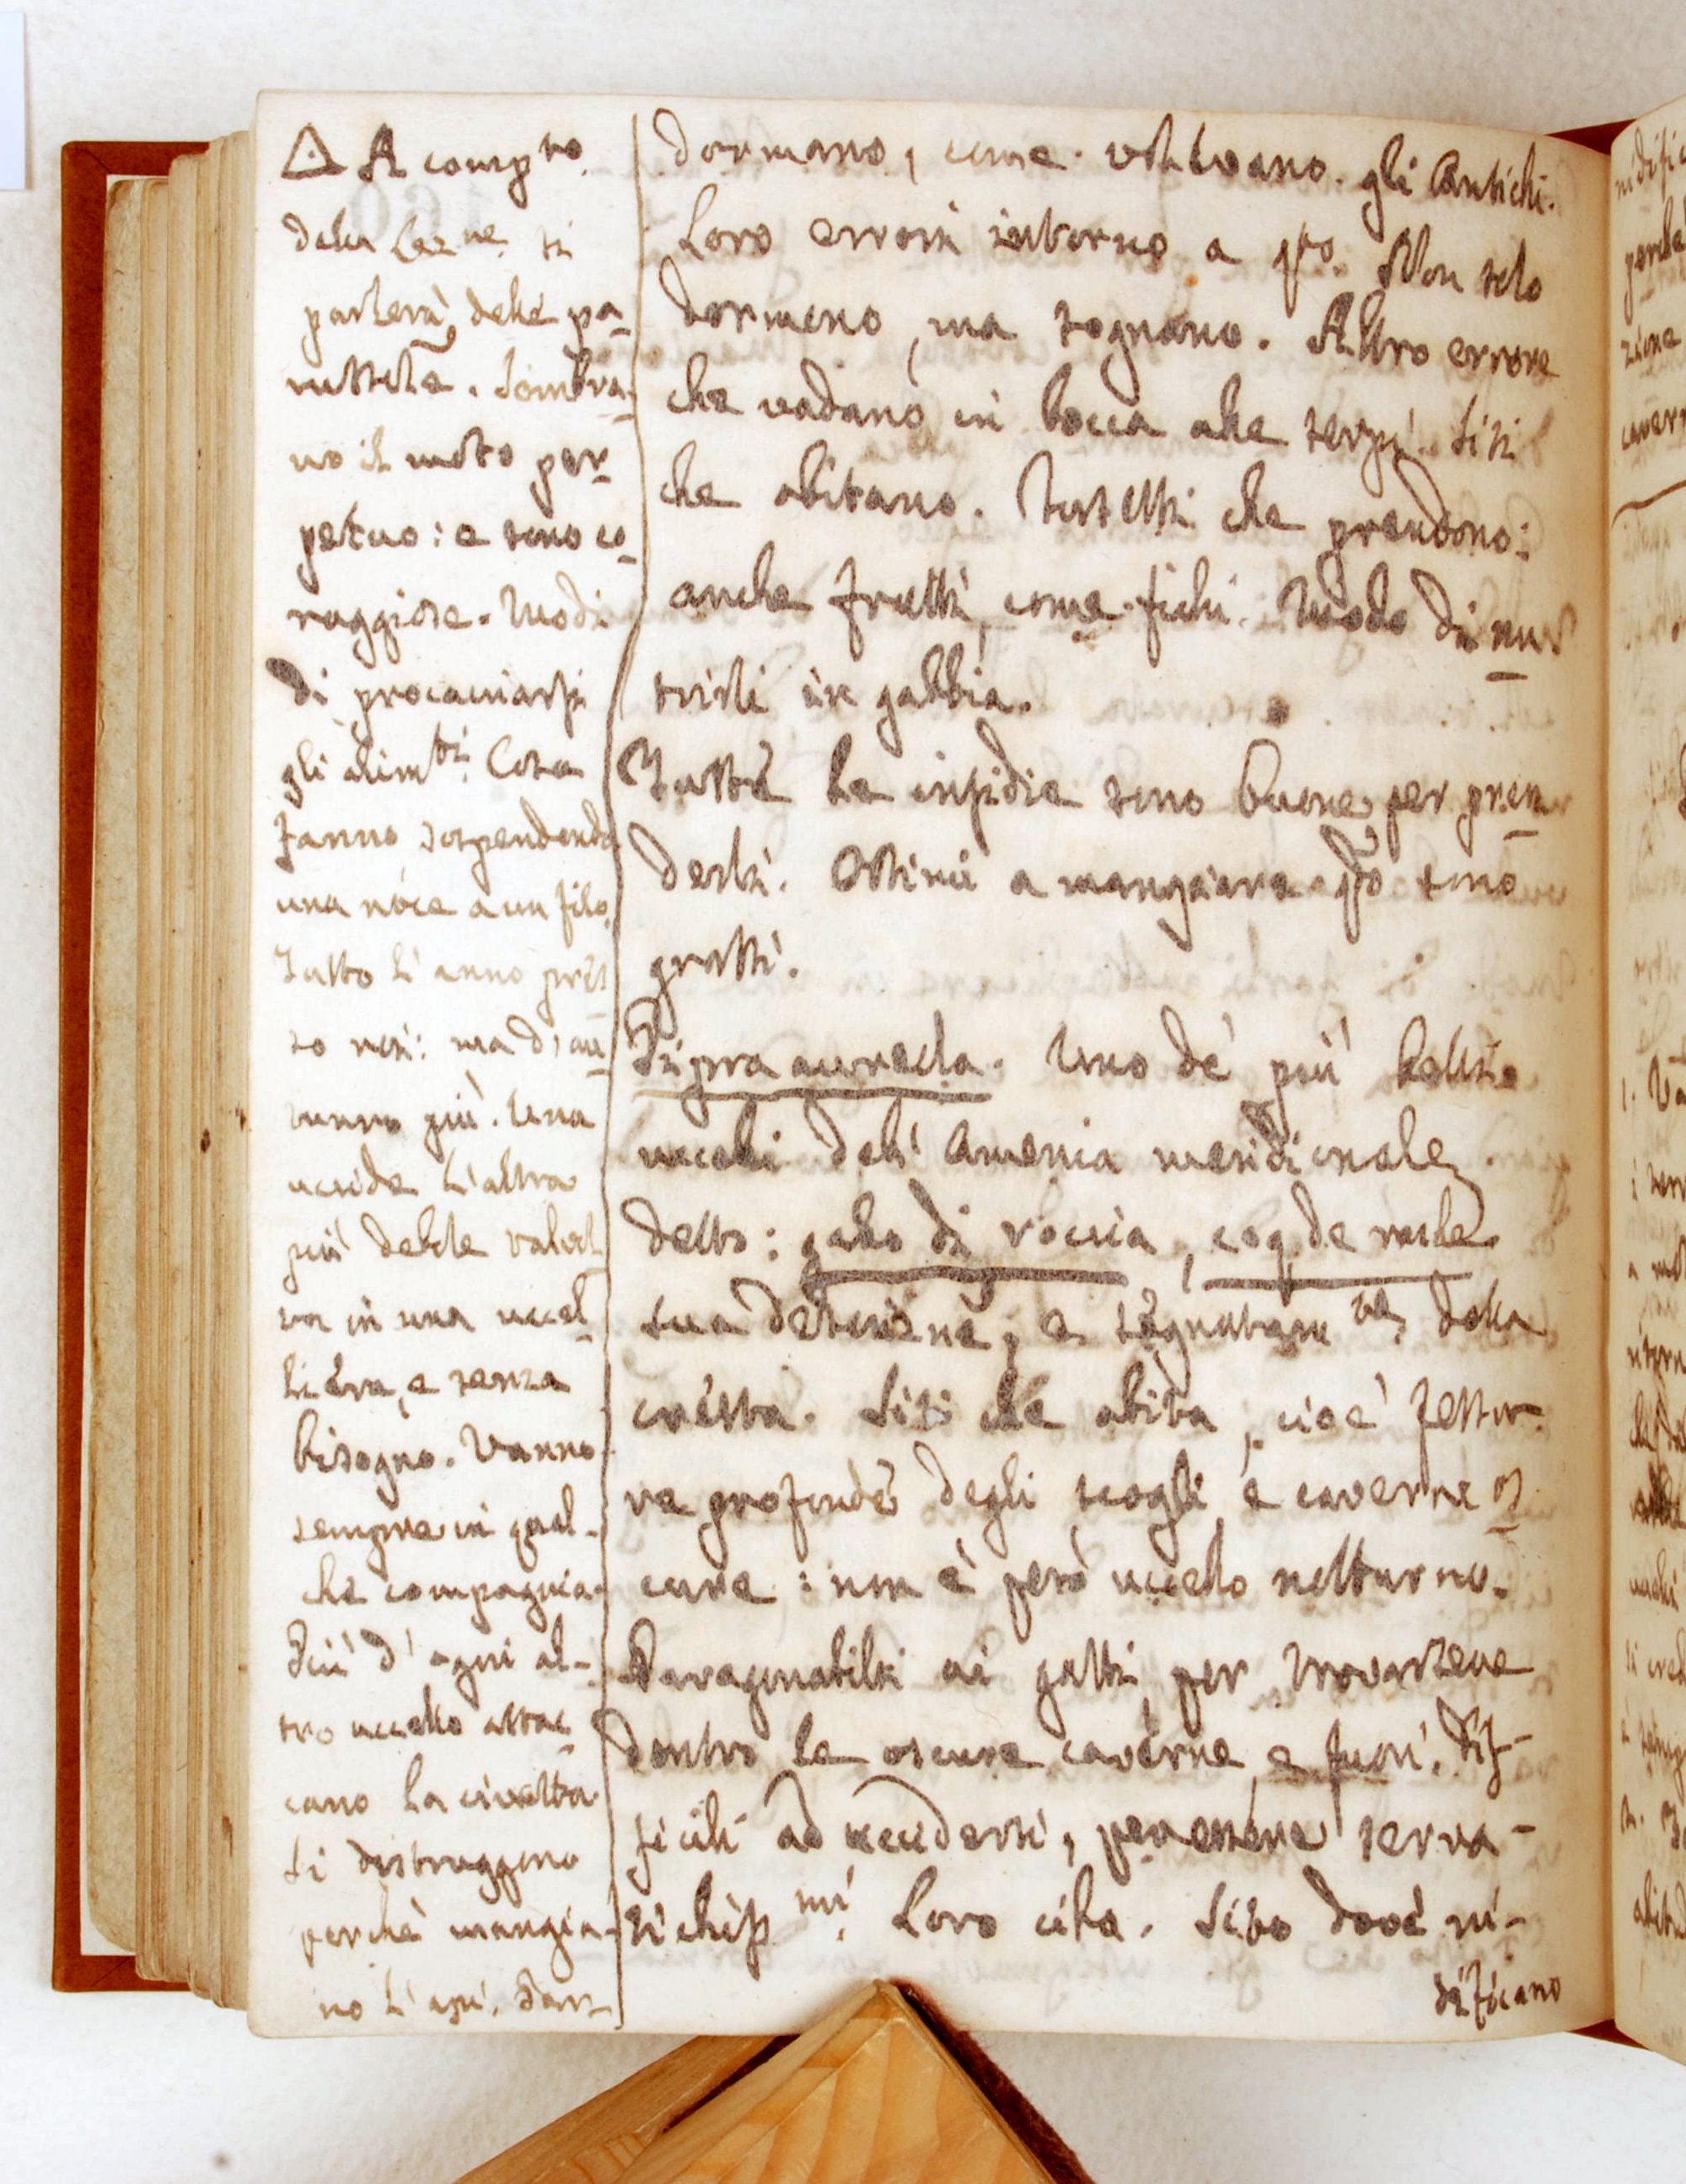 △ A comp.to
della Lez.ne si
parlerà delle pa-
russole. Sembra-
no il moto per-
petuo: e sono co-
raggiose. Modi
di procacciarsi
gli alim.ti. Cosa
fanno sospendendo
una noce a un filo.
Tutto l'anno pres-
so noi: ma d'au-
tunno più. Una
uccide l'altra
più debole
va in una uccel-
liera, e senza
bisogno. Vanno
sempre in qual-
che compagnia.
Più d'ogni al-
tro uccello attac-
cano la civetta.
Si distruggono
perchè mangia-
no l'api.
dormano, come volevano gli Antichi.
Loro errori intorno a q.to. Non solo
dormono, ma sognano. Altro errore
che vadano in bocca alle serpi. Siti
che abitano. Insetti che prendono:
anche frutti, come fichi. Modo di nu-
trirli in gabbia.
Tutte le insidie sono buone per pren-
derli. Ottimi a mangiare q.do sono
grassi.
Pipra aurea. Uno de' più belli
uccelli dell'America meridionale,
detto: gallo di roccia, coq de roche
sua descrizione, e segnatam.te della
cresta. Siti che abita, cioè fessu-
re profonde degli scogli, e caverne os-
cure: non è però uccello notturno.
Paragonabili ai gatti, per trovarsene
dentro le oscure caverne, e fuori. Dif-
ficili ad uccidersi, per essere serva-
tichiss.mi. Loro cibo. Sito dove ni-
dificano